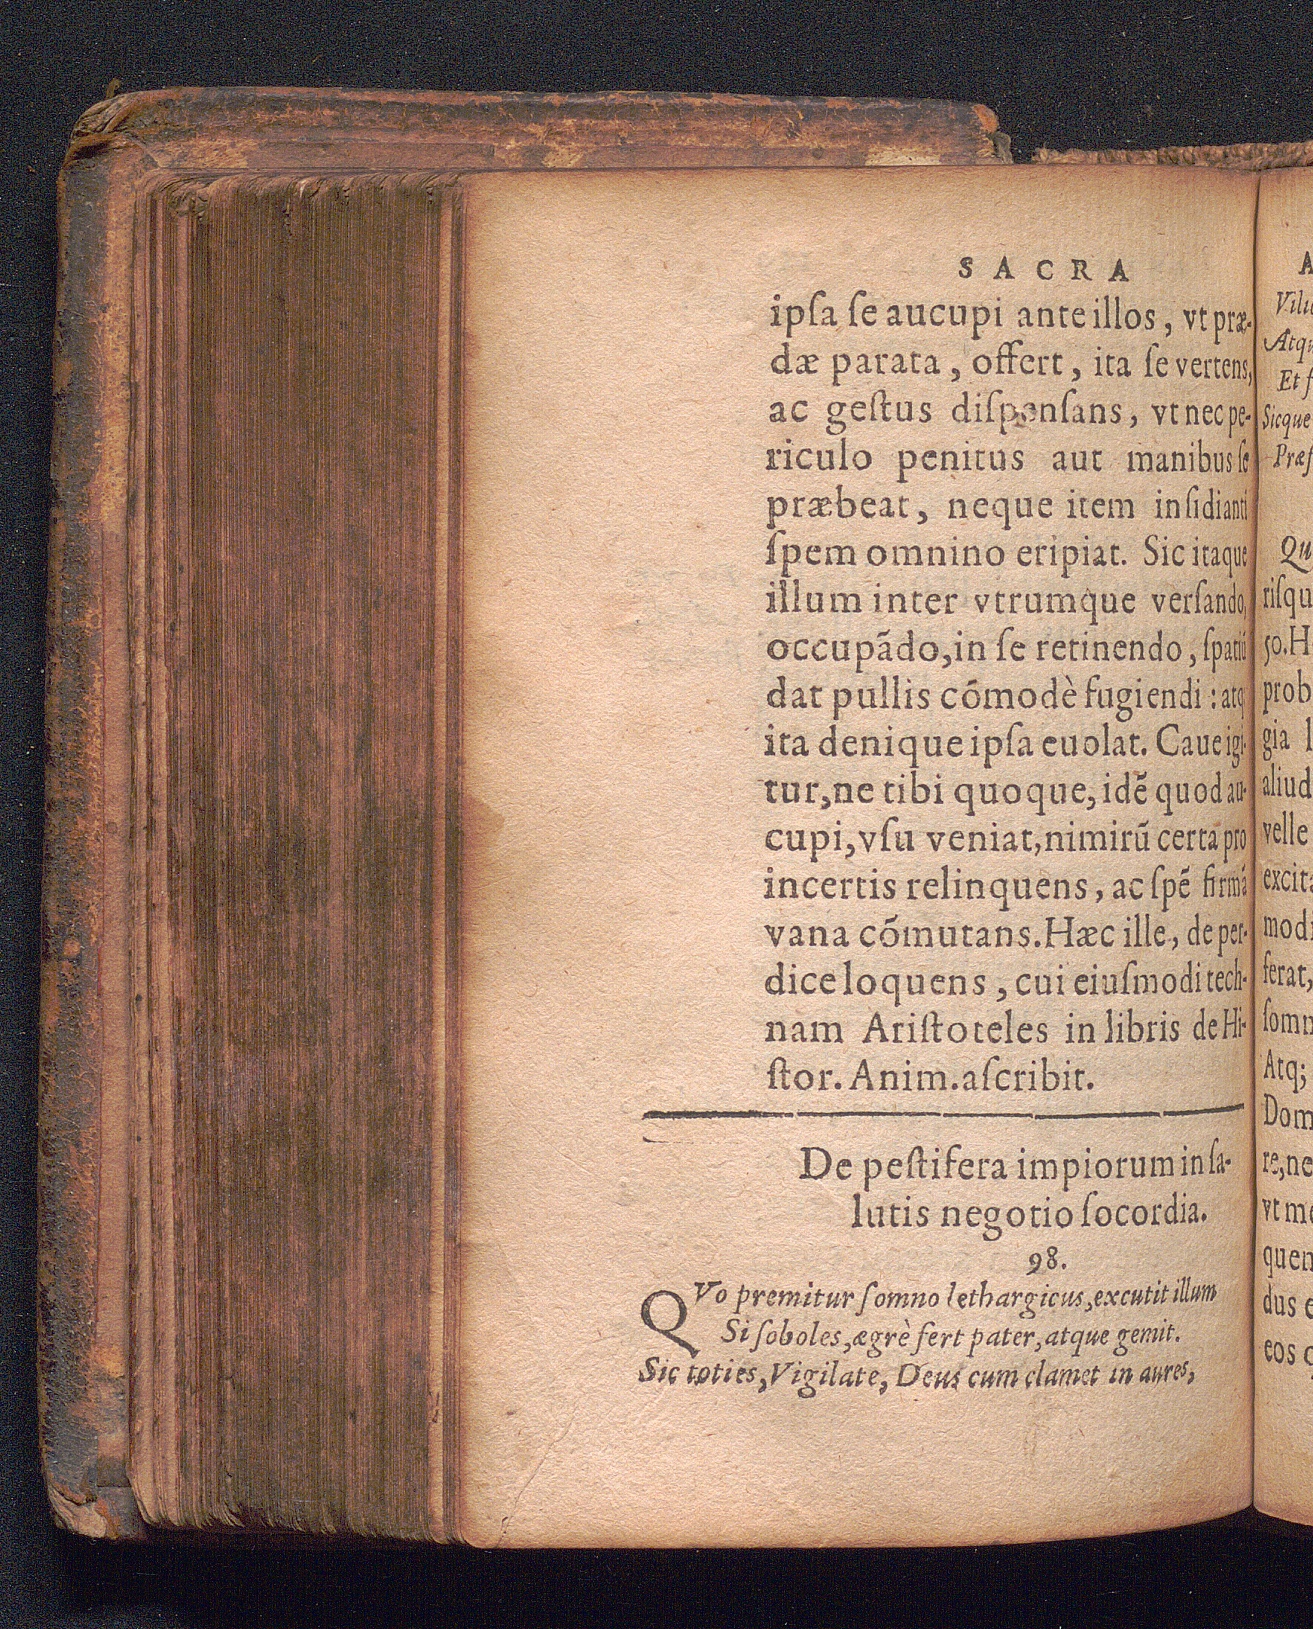 SACRA
ipſa ſe aucupi ante illos, vt præ-
dæ parata, offert, ita ſe vertens,
ac geſtus diſpenſans, vt nec pe-
riculo penitus aut manibus ſe
præbeat, neque item inſidianti
ſpem omnino eripiat. Sic itaque
illum inter vtrumque verſando,
occupãdo, in ſe retinendo, ſpatiũ
dat pullis cõmodè fugiendi: atq
ita denique ipſa euolat. Caue igi-
tur, ne tibi quoque, idẽ quod au-
cupi, vſu veniat, nimirũ certa pro
incertis relinquens, ac ſpẽ firmã
vana cõmutans. Hæc ille, de per-
dice loquens, cui eiuſmodi tech-
nam Ariſtoteles in libris de Hi-
ſtor. Anim. aſcribit.
De peſtifera impiorum in ſa-
lutis negotio ſocordia.
98.
QVo premitur ſomno lethargicus, excutit illum
Si ſoboles, ægrè fert pater, atque gemit.
Sic toties, Vigilate, Deus cum clamet in aures,
A
Et
Sicque
Qu
riſqu
50. H
prob
gia
aliud
velle
excit
ferat,
ſomn
Atq;
Dom
re, ne
quen
dus
eos